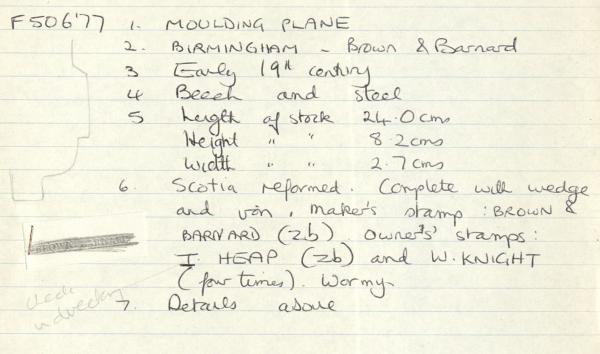 F506'77 1. MOULDING PLANE
2. BIRMINGHAM - Brown & Barnard
3 Early 19th century
4 Beech and steel
5 Length of stock 24.0cms
Height " " 8.2cms
Width " " 2.7cms
6. Scotia reformed. Complete with wedge
and iron, maker's stamp: BROWN &
BARNARD (zb) owner's' stamps:
I. HEAP (zb) and W. KNIGHT
(four times). Wormy.
check
in directory
7. Details above